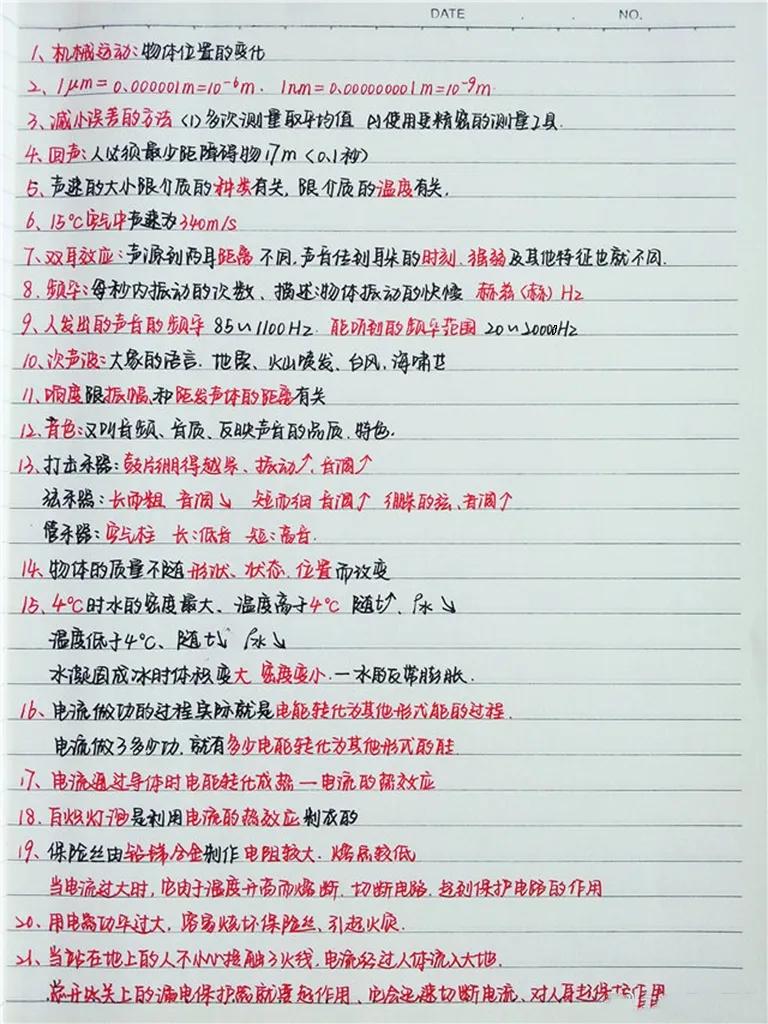 DATE . . NO.
1、机械运动:物体位置的变化
2、1μm=0.000001m=10⁻⁶m. 1nm=0.000000001m=10⁻⁹m
3、减小误差的方法 (1)多次测量取平均值 (2)使用更精密的测量工具.
4、回声:人必须最少距障碍物17m(0.1秒)
5、声速的大小跟介质的种类有关,跟介质的温度有关.
6、15℃空气中声速为340m/s
7、双耳效应:声源到两耳距离不同,声音传到耳朵的时刻、强弱及其他特征也就不同.
8.频率:每秒内振动的次数、描述物体振动的快慢 赫兹(赫)Hz
9、人发出的声音的频率 85~1100Hz. 能听到的频率范围 20~20000Hz
10、次声波:大象的语言.地震、火山喷发、台风,海啸
11、响度跟振幅,和距发声体的距离有关
12、音色:又叫音频、音质、反映声音的品质.特色.
13、打击乐器:鼓片绷得越紧、振动↑,音调↑
弦乐器:长而粗 音调↘ 短而细 音调↑ 绷紧的弦、音调↑
管乐器:空气柱 长:低音 短:高音.
14、物体的质量不随形状、状态.位置而改变
15、4℃时水的密度最大、温度高于4℃ 随t↑、ρ水↘
温度低于4℃、随t↘ ρ水↘
水凝固成冰时体积变大 密度变小.一水的反常膨胀.
16、电流做功的过程实际就是电能转化为其他形式能的过程.
电流做了多少功.就有多少电能转化为其他形式的能.
17、电流通过导体时电能转化成热一电流的热效应
18、白炽灯泡是利用电流的热效应制成的
19、保险丝由铅锑合金制作 电阻较大.熔点较低
当电流过大时,它由于温度升高而熔断.切断电路.起到保护电路的作用
20、用电器功率过大,容易烧坏保险丝、引起火灾.
21、当站在地上的人不小心接触了火线.电流经过人体流入大地.
总开关上的漏电保护器就要起作用、它会迅速切断电流、对人身起保护作用